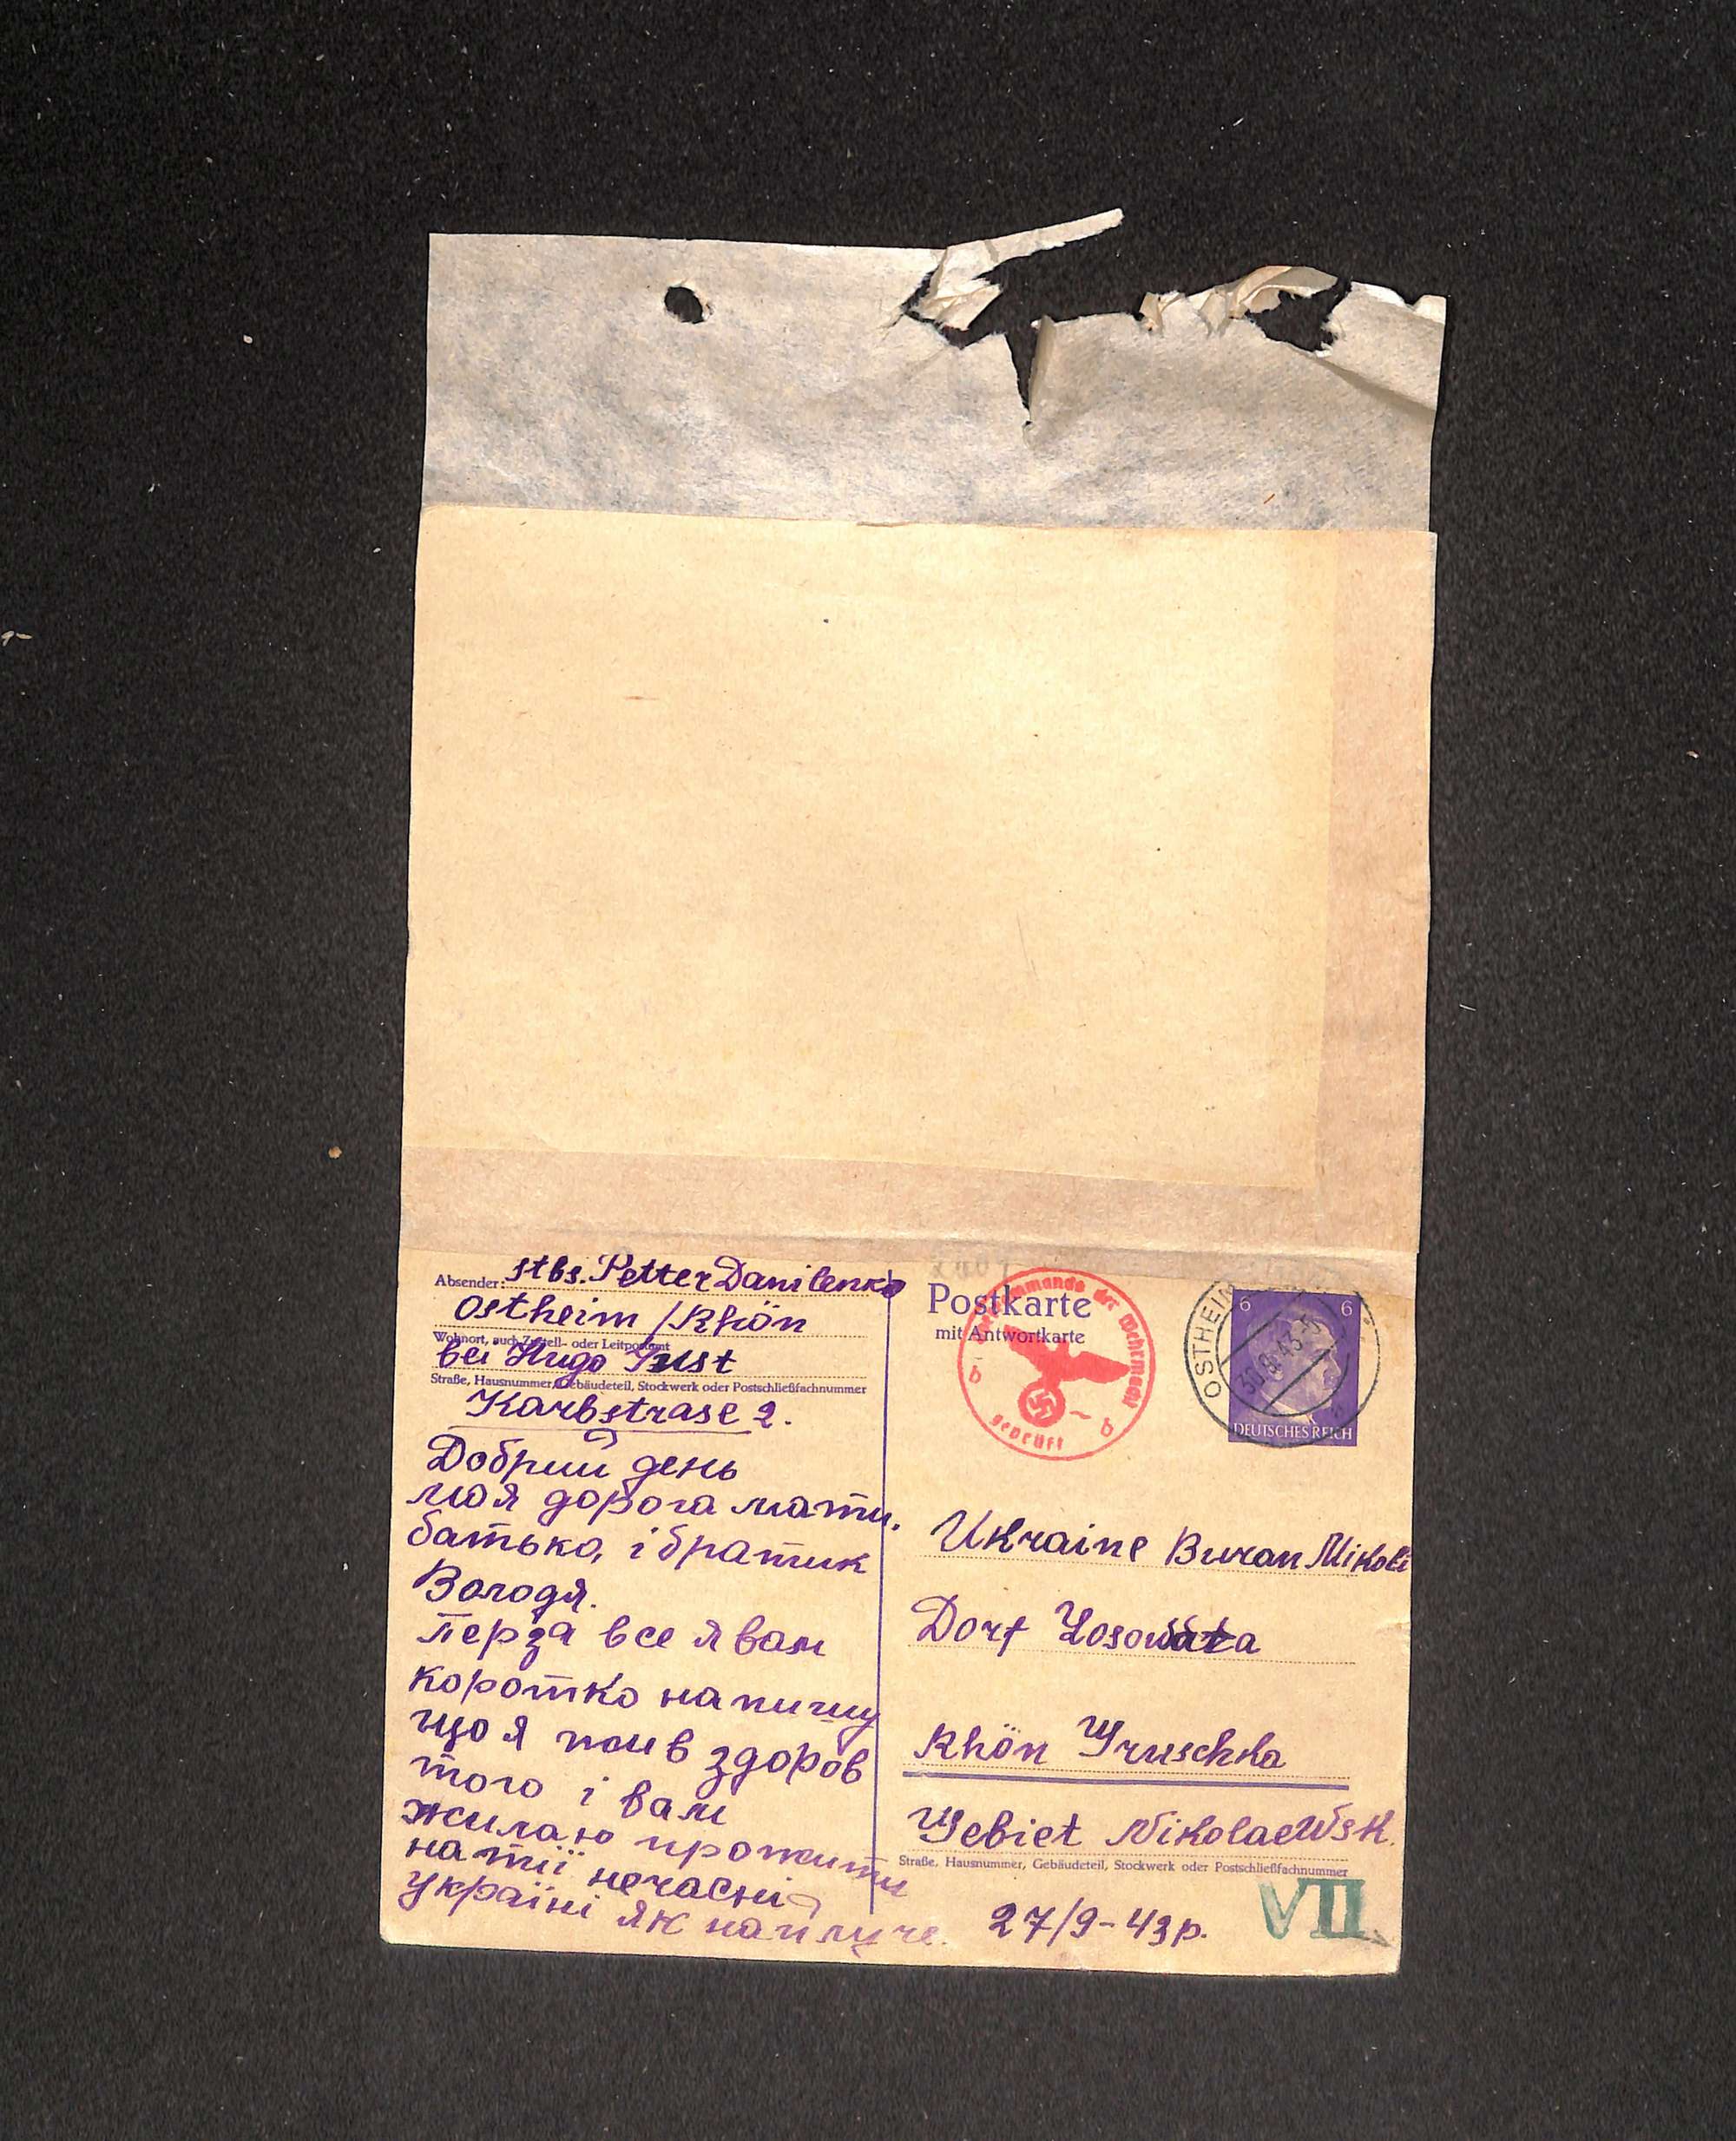 Absender: stbs. Petter Danilenko
Ostheim /Rhön
Wohnort, auch Zustell- oder Leitpostamt
bei Hugo Just
Straße, Hausnummer, Gebäudeteil, Stockwerk oder Postschließfachnummer
Karbstrase 2.
Добрий день
моя дорога мати.
батько, і братик
Володя.
Перза все я вам
коротко напишу
що я жив здоров
того і вам
жилаю прожити
на тії нечасні
україні як найлуче.
Postkarte
mit Antwortkarte
Oberkommando der Wehrmacht
geprüft
b b
OSTHEIM
30.9.43
6 6
DEUTSCHES REICH
Ukraine Buran Mikoli
Dorf Losowata
Rhön Gruschka
Gebiet Nikolaewsk.
Straße, Hausnummer, Gebäudeteil, Stockwerk oder Postschließfachnummer
27/9-43р.
VII